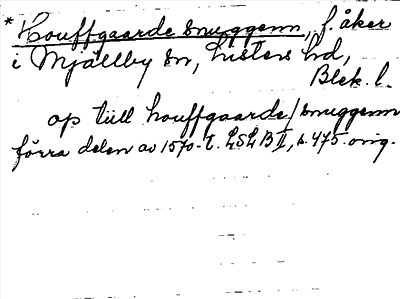 *Houffgaarde snuggenn, f. åker
i Mjällby sn, Listers hd,
Blek. l.
op tiill houffgaarde/snuggenn
förra delen av 1570-t. LSLB II, s. 475. orig.